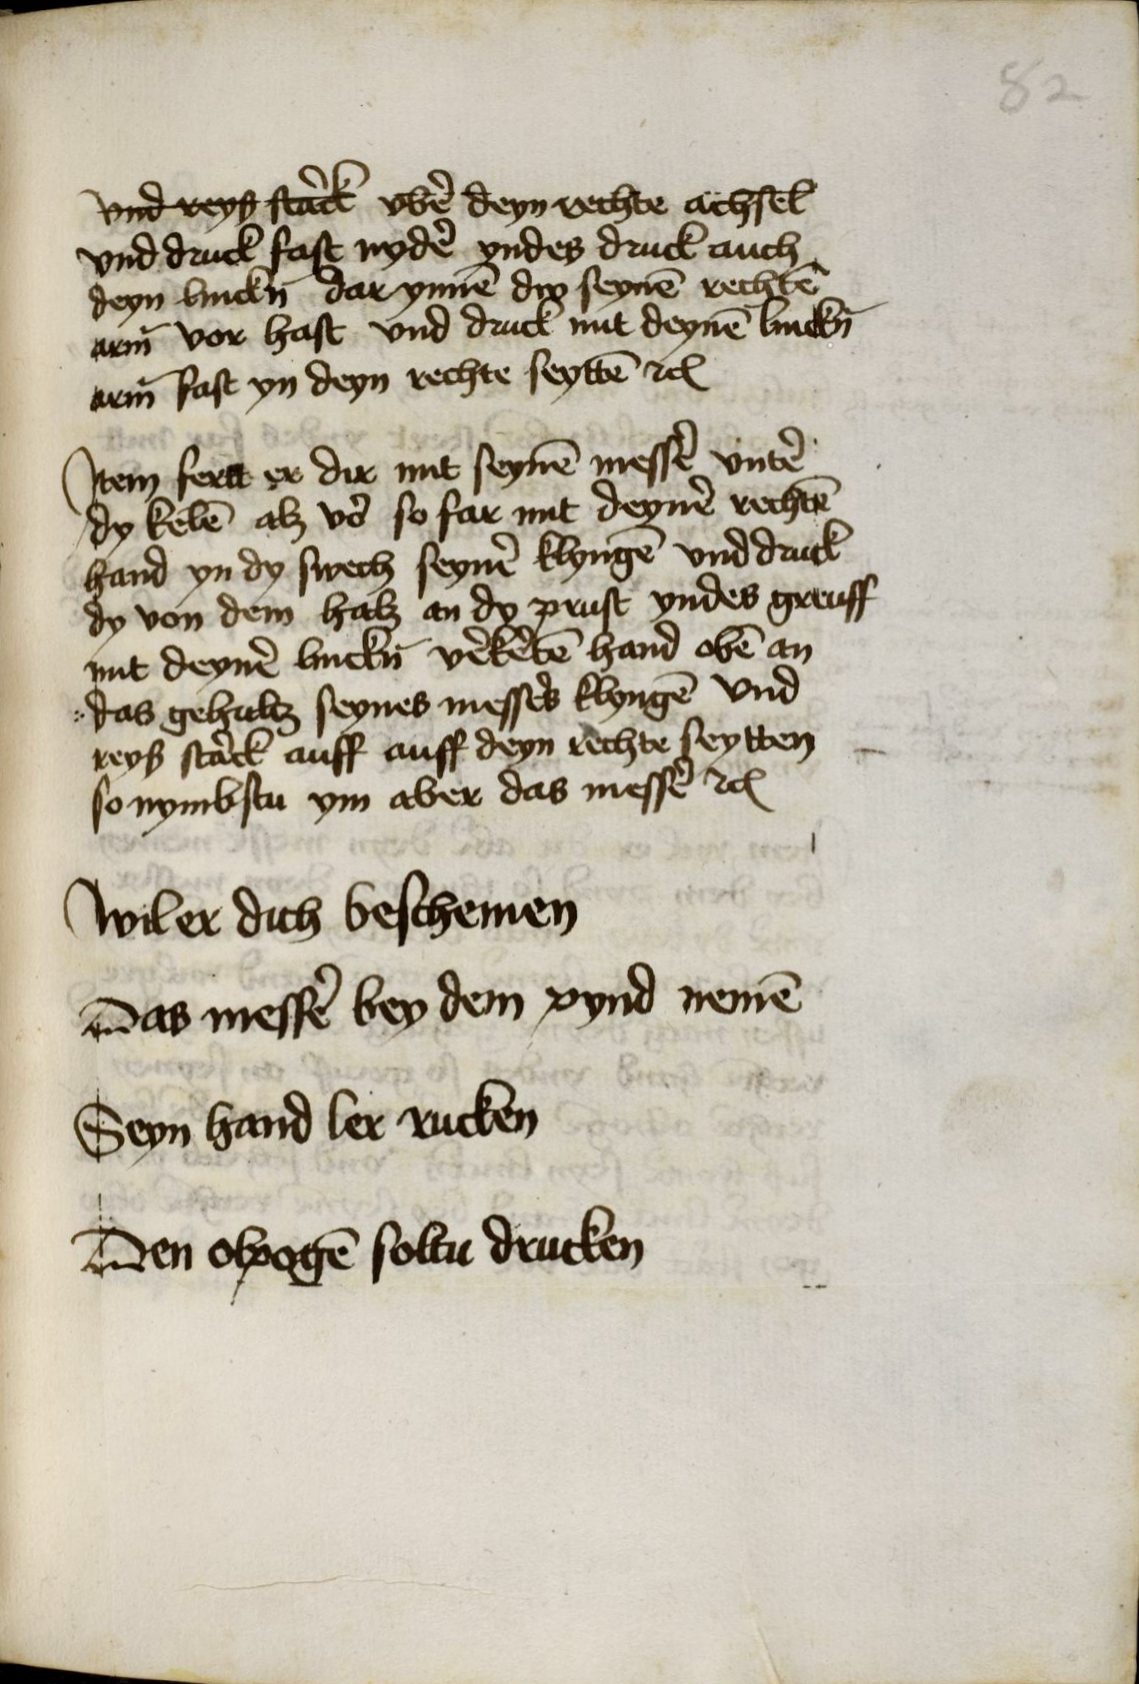 82
vnd reyß starck vber deyn rechte achsel
vnd druck fast nyder yndes druck auch
deyn linckñ dar ynnē du seynē rechtē
arm̄ vor hast vnd druck mit deynē linckñ
arm̄ fast yn deyn rechte seyttē ꝛc̄
Item fertt er dir mit seynē messer vnter
dy kelē alz vor so far mit deyner rechtē
hand yn dy swech seyner klyngē vnd druck
dy von dem halz an dy prust yndes greuff
mit deyner linckñ verkertē hand obē an
das gehultz seynes messers klyngē vnd
reyß starck auff auff deyn rechte seytten
so nymbstu ym aber das messer ꝛc̄
Wil er dich beschemen
Das messer bey dem pynd nemē
Seyn hand ler rucken
Den olpogē soltu drucken